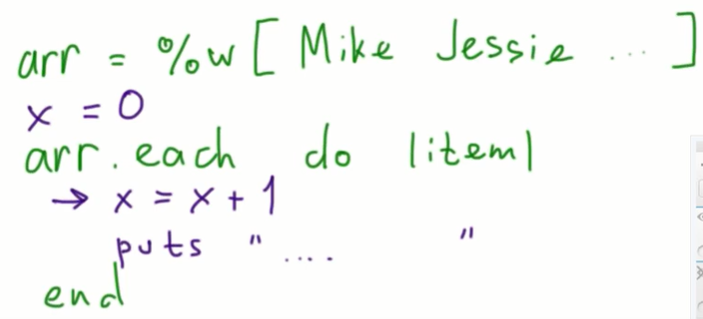 arr = %w[ Mike Jessie ... ]
x = 0
arr.each do |item|
→ x = x + 1
puts " .... "
end